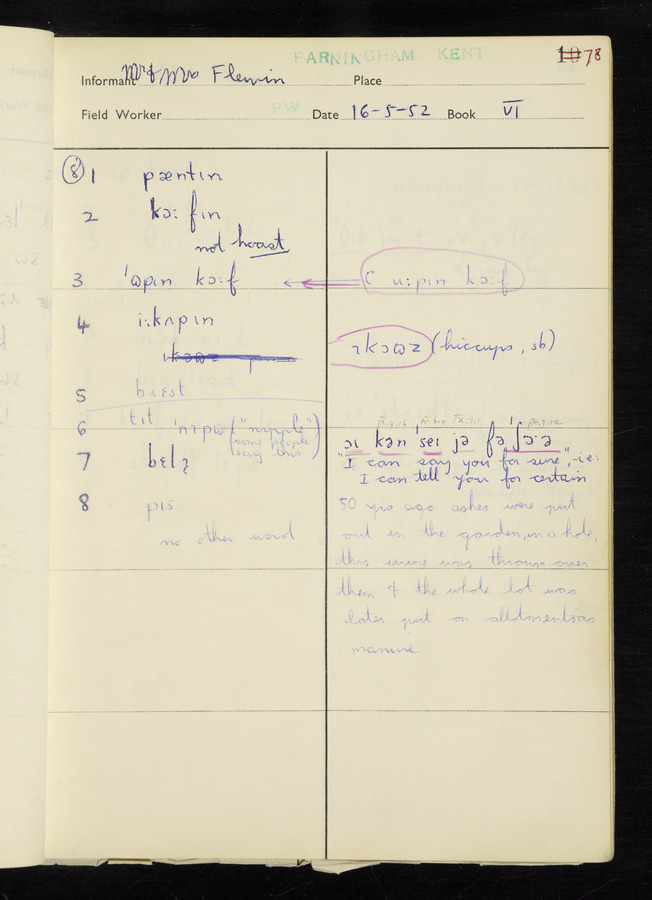 FARNINGHAM KENT
10 78
Informant Mr & Mrs Flewin Place
Field Worker PW Date 16-5-52 Book VI
8 1 pæntɪn
2 kɔː fɪn
not hoast
3 ˈʊpɪn kɔːf
ɪ uːpɪn kɔːf
4 iːkʌpɪn
ɪkɔʊz (hiccups, sb)
5 brɛst
6 tɪt ("nipple")
some people
say this
ɔɪ kən ˈseɪ jə fə ˈʃɔːə
7 bɛlɪ
"I can say you for sure", ie:
I can tell you for certain
8 pɪs
no other word
50 yrs ago ashes were put
out in the garden, in a hole,
this urine was thrown over
them & the whole lot was
later put on allotments as
manure